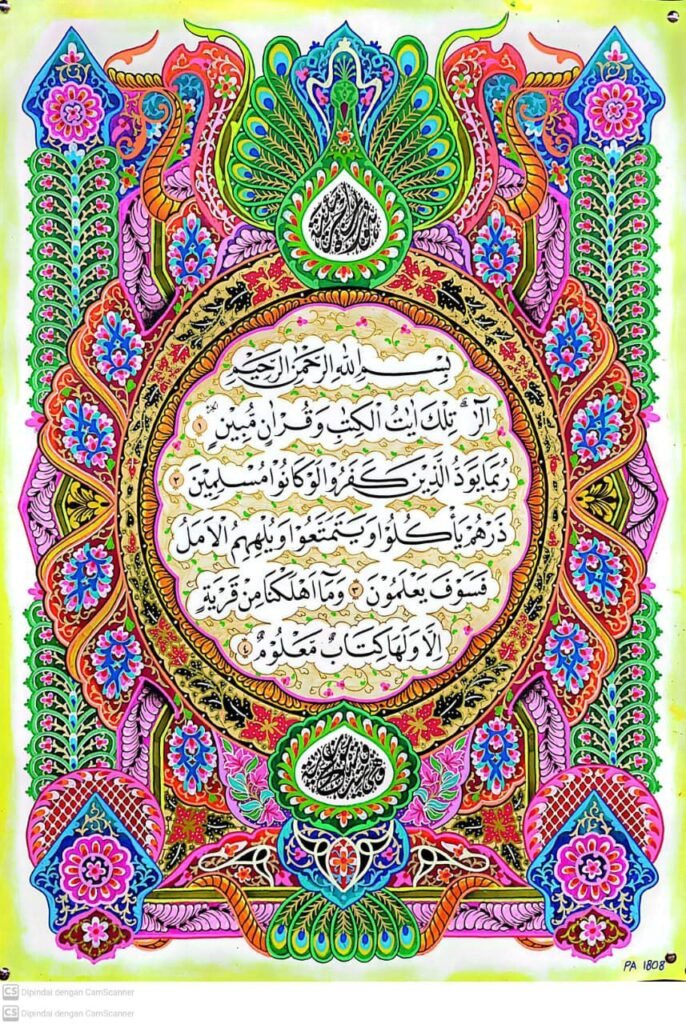 بِسْمِ اللهِ الرَّحْمٰنِ الرَّحِيْمِ
الٓرٰ ۗ تِلْكَ اٰيٰتُ الْكِتٰبِ وَقُرْاٰنٍ مُّبِيْنٍ ١
رُبَمَا يَوَدُّ الَّذِيْنَ كَفَرُوْا لَوْ كَانُوْا مُسْلِمِيْنَ ٢
ذَرْهُمْ يَأْكُلُوْا وَيَتَمَتَّعُوْا وَيُلْهِهِمُ الْاَمَلُ
فَسَوْفَ يَعْلَمُوْنَ ٣ وَمَآ اَهْلَكْنَا مِنْ قَرْيَةٍ
اِلَّا وَلَهَا كِتَابٌ مَّعْلُوْمٌ ٤
PA 1808
CS Dipindai dengan CamScanner
CS Dipindai dengan CamScanner